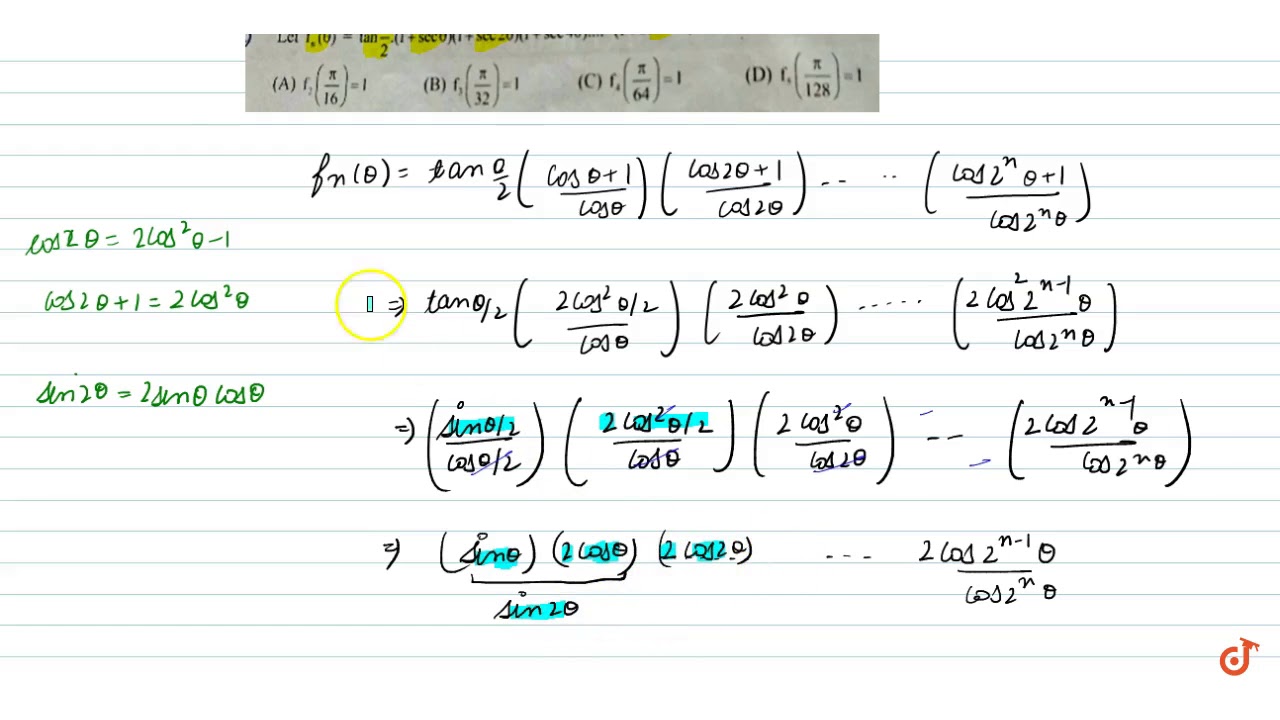 Let fₙ(θ) = tan θ/2 (1 + secθ)(1 + sec2θ)(1 + sec4θ)....
(A) f₂(π/16) = 1 (B) f₃(π/32) = 1 (C) f₄(π/64) = 1 (D) f₅(π/128) = 1
fn(θ) = tan θ/2 ((cosθ+1)/cosθ) ((cos2θ+1)/cos2θ) -- -- ((cos2ⁿθ+1)/cos2ⁿθ)
cos2θ = 2cos²θ-1
cos2θ+1 = 2cos²θ
⇒ tanθ/2 ((2cos²θ/2)/cosθ) ((2cos²θ)/cos2θ) ..... ((2cos²2ⁿ⁻¹θ)/cos2ⁿθ)
sin2θ = 2sinθ cosθ
⇒ ((sinθ/2)/(cosθ/2)) ((2cos²θ/2)/cosθ) ((2cos²θ)/cos2θ) -- -- ((2cos2ⁿ⁻¹θ)/cos2ⁿθ)
⇒ (sinθ) (2cosθ) (2cos2θ) --- (2cos2ⁿ⁻¹θ)/(cos2ⁿθ)
sin2θ